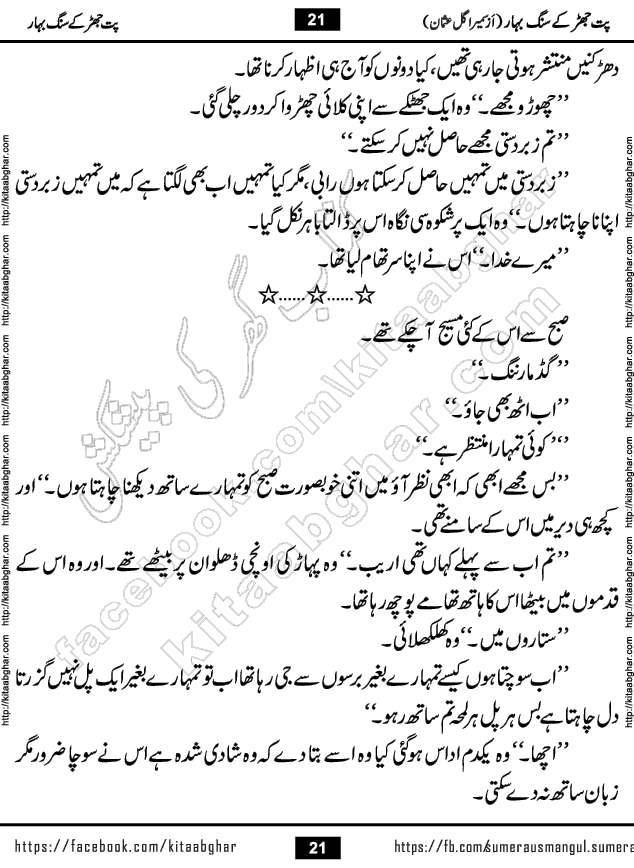 پت جھڑ کے سنگ بہار (از سمیرا گل عثمان) 21 پت جھڑ کے سنگ بہار
دھڑکنیں منتشر ہوتی جا رہی تھیں، کیا دونوں کو آج ہی اظہار کرنا تھا۔
’’چھوڑو مجھے۔‘‘ وہ ایک جھٹکے سے اپنی کلائی چھڑوا کر دور چلی گئی۔
’’تم زبردستی مجھے حاصل نہیں کر سکتے۔‘‘
’’زبردستی میں تمہیں حاصل کر سکتا ہوں رابی، مگر کیا تمہیں اب بھی لگتا ہے کہ میں تمہیں زبردستی
اپنانا چاہتا ہوں۔‘‘ وہ ایک پر شکوہ سی نگاہ اس پر ڈالتا باہر نکل گیا۔
’’میرے خدا۔‘‘ اس نے اپنا سر تھام لیا تھا۔
☆......☆......☆
صبح سے اس کے کئی مسیج آ چکے تھے۔
’’گڈ مارننگ۔‘‘
’’اب اٹھ بھی جاؤ۔‘‘
’’کوئی تمہارا منتظر ہے۔‘‘
’’بس مجھے ابھی کہ ابھی نظر آؤ میں اتنی خوبصورت صبح کو تمہارے ساتھ دیکھنا چاہتا ہوں۔‘‘ اور
کچھ ہی دیر میں اس کے سامنے تھی۔
’’تم اب سے پہلے کہاں تھی اریب۔‘‘ وہ پہاڑ کی اونچی ڈھلوان پر بیٹھے تھے۔ اور وہ اس کے
قدموں میں بیٹھا اس کا ہاتھ تھامے پوچھ رہا تھا۔
’’ستاروں میں۔‘‘ وہ کھلکھلائی۔
’’اب سوچتا ہوں کیسے تمہارے بغیر برسوں سے جی رہا تھا اب تو تمہارے بغیر ایک پل نہیں گزرتا
دل چاہتا ہے بس ہر پل ہر لمحہ تم ساتھ رہو۔‘‘
’’اچھا۔‘‘ وہ یکدم اداس ہو گئی کیا وہ اسے بتا دے کہ وہ شادی شدہ ہے اس نے سوچا ضرور مگر
زبان ساتھ نہ دے سکتی۔
https://facebook.com/kitaabghar 21 https://fb.com/sumerausmangul.sumera
http://kitaabghar.com http://kitaabghar.com http://kitaabghar.com http://kitaabghar.com http://kitaabghar.com http://kitaabghar.com
http://kitaabghar.com http://kitaabghar.com http://kitaabghar.com http://kitaabghar.com http://kitaabghar.com http://kitaabghar.com
کتاب گھر کی پیشکش
facebook.com\kitaabghar
kitaabghar.com